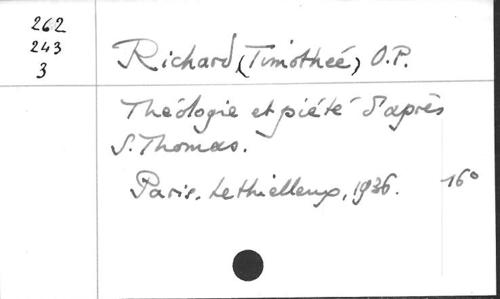 262
243
3
Richard (Timotheé) O.P.
Théologie et piété d'après
S. Thomas.
Paris. Lethielleux, 1936. 16°